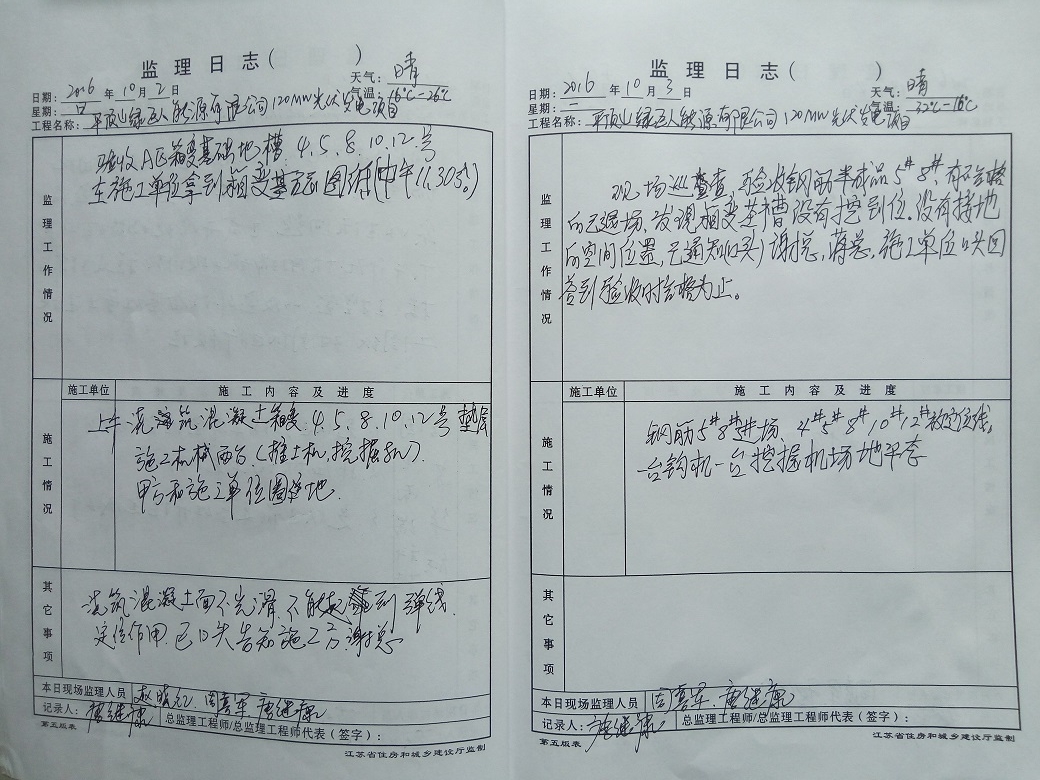 监理日志（　　　）
日期：2016年10月2日 天气：晴
星期：日 气温：16℃-26℃
工程名称：平顶山绿巨人能源有限公司120MW光伏发电项目
监理工作情况
验收A区箱变基础地槽. 4.5.8.10.12.号
在施工单位拿到箱变基础图纸(中午11:30分。)
施工单位 施工内容及进度
施工情况
上午浇筑混凝土箱变. 4.5.8.10.12号垫层
施工机械两台.(推土机,挖掘机).
甲方和施工单位圈地.
其它事项
浇筑混凝土面不光滑.不能起到弹线.
定位作用.已口头告知施工方.谢总
本日现场监理人员 周喜军 唐继康
记录人：唐继康 总监理工程师/总监理工程师代表（签字）：
第五版表 江苏省住房和城乡建设厅监制
监理日志（　　　）
日期：2016年10月3日 天气：晴
星期：一 气温：32℃-16℃
工程名称：平顶山绿巨人能源有限公司120MW光伏发电项目
监理工作情况
现场巡查,验收钢筋半成品5#8#,有不合格
的已退场、发现箱变基槽没有挖到位.没有接地
的空间位置,已通知(口头)谢总,蒋总,施工单位口头回
答到验收时合格为止。
施工单位 施工内容及进度
施工情况
钢筋5#8#进场、4#5#8#10#12#放定位线.
一台钩机一台挖掘机场地平整
其它事项
本日现场监理人员 周喜军 唐继康
记录人：唐继康 总监理工程师/总监理工程师代表（签字）：
第五版表 江苏省住房和城乡建设厅监制